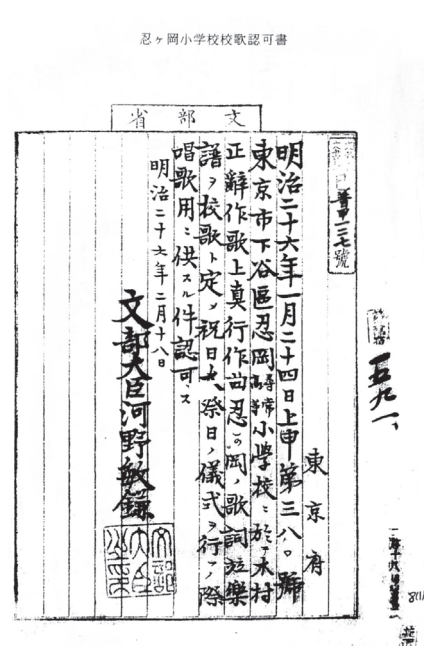 忍ヶ岡小学校校歌認可書
文部省
普甲一三七號
東京府
明治二十六年一月二十四日上申第三八〇號
東京市下谷區忍岡尋常高等小學校ニ於テ木村
正辭作歌上真行作曲忍ヶ岡ノ歌詞竝樂
譜ヲ校歌ト定メ祝日大祭日ノ儀式ヲ行フノ際
唱歌用ニ供スル件認可ス
明治二十六年二月十八日
文部大臣河野敏鎌
文部大臣之印
一五九一、